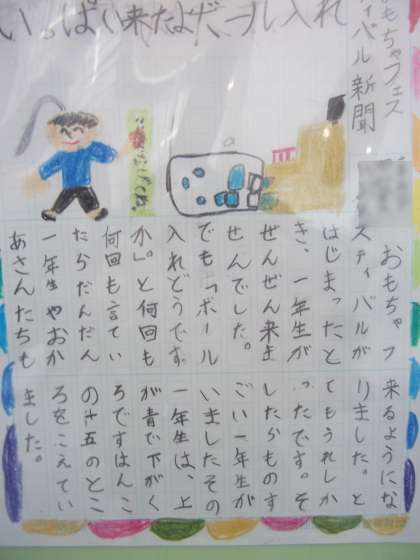 いっぱい来たよボール入れ
もちゃフェス
ティバル新聞
おもちゃフ
ェスティバルが
はじまったと
き、一年生が
ぜんぜん来ま
せんでした。
でも「ボール
入れどうです
か。」と何回も
何回も言てい
たらだんだん
一年生やおか
あさんたちも
来るようにな
りました。と
てもうれしか
ったです。そ
したらものす
ごい一年生が
いましたその
一年生は、上
が青で下がく
ろですはんこ
の十五のとこ
ろをこえてい
ました。